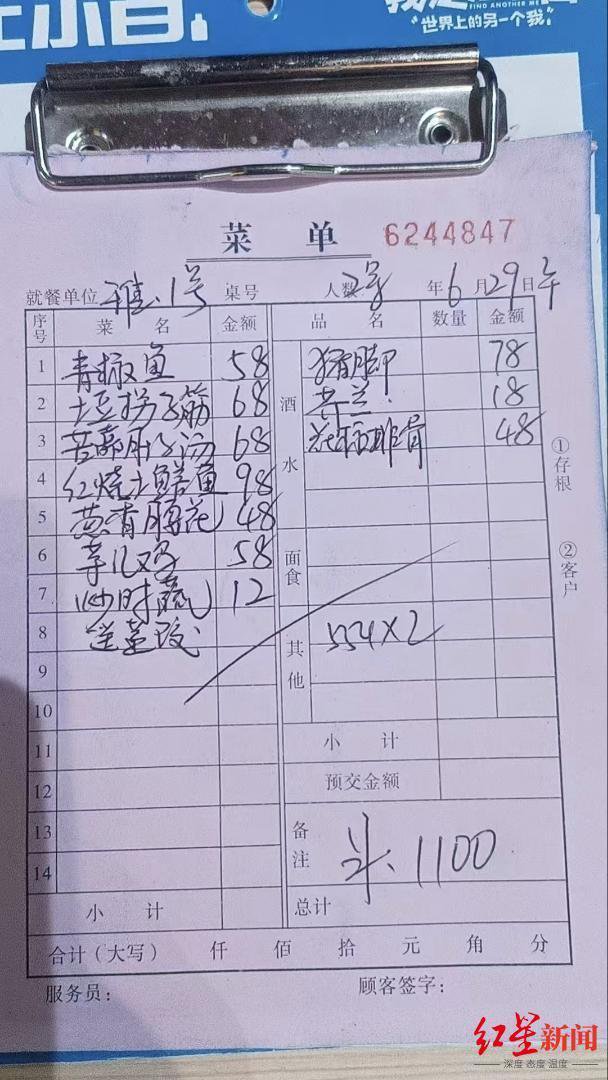 FIND ANOTHER ME
“世界上的另一个我”
菜 单 6244847
就餐单位 雅.1号 桌号 人数 2号 年 6 月 29 日 午
序号 菜 名 金额 品 名 数量 金额
1 青椒鱼 58 酒水 猪脚 78
2 土豆拐子筋 68 芥兰. 18
3 68 48
4 红烧土鳝鱼 98
5 48
6 58 面食
7 炒时蔬 12
8 其他 554X2
9
10
11 小 计
12 预交金额
13 备注 斗、1100
14
小 计 总计
合计(大写) 仟 佰 拾 元 角 分
服务员: 顾客签字:
①存根
②客户
红星新闻
深度 态度 温度